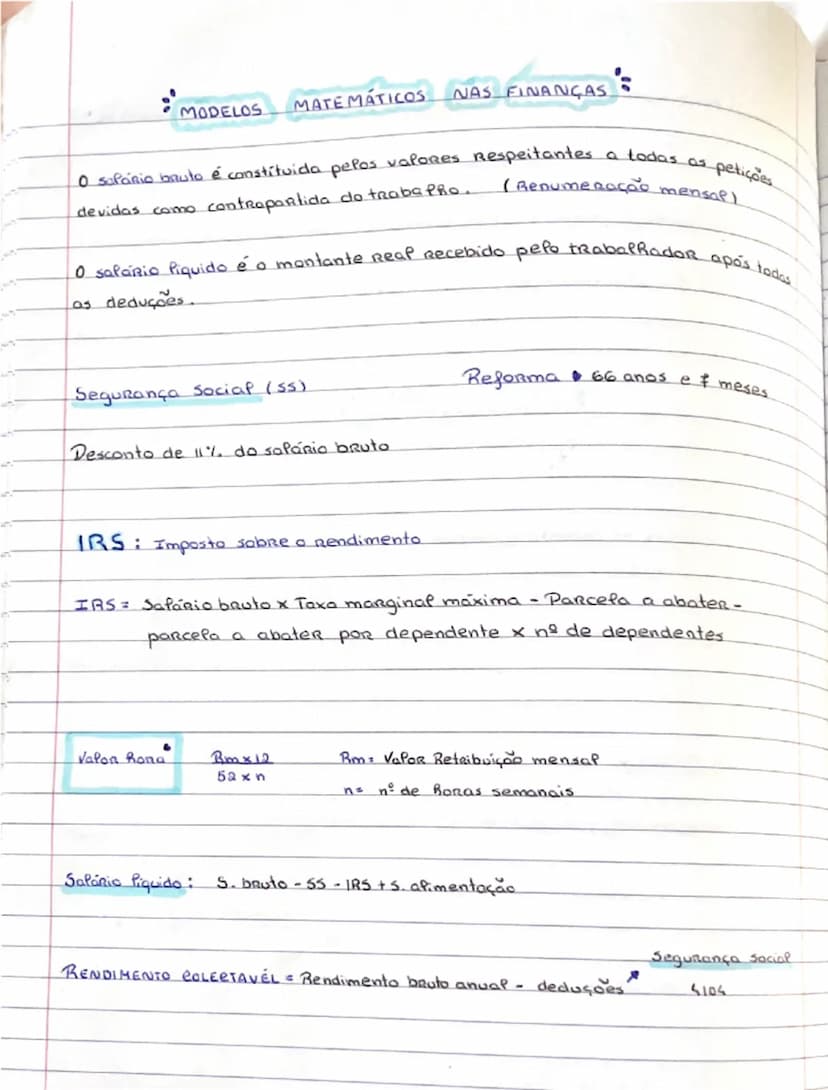 MODELOS MATEMÁTICOS NAS FINANÇAS
O salário bruto é constituida pelos valores respeitantes a todas as petições
devidas como contrapartida do trabalho. (Renumeração mensal)
O salário líquido é o montante real recebido pelo trabalhador após todas
as deduções.
Segurança Social (SS) Reforma 66 anos e 7 meses
Desconto de 11% do salário bruto
IRS: Imposto sobre o rendimento
IRS = Salário bruto x Taxa marginal máxima - Parcela a abater -
parcela a abater por dependente x nº de dependentes
Valor hora Rm x 12 Rm = Valor Retribuição mensal
52 x n
n = nº de horas semanais
Salário líquido: S. bruto - SS - IRS + S. alimentação
Segurança social
RENDIMENTO COLECTAVÉL = Rendimento bruto anual - deduções
4104